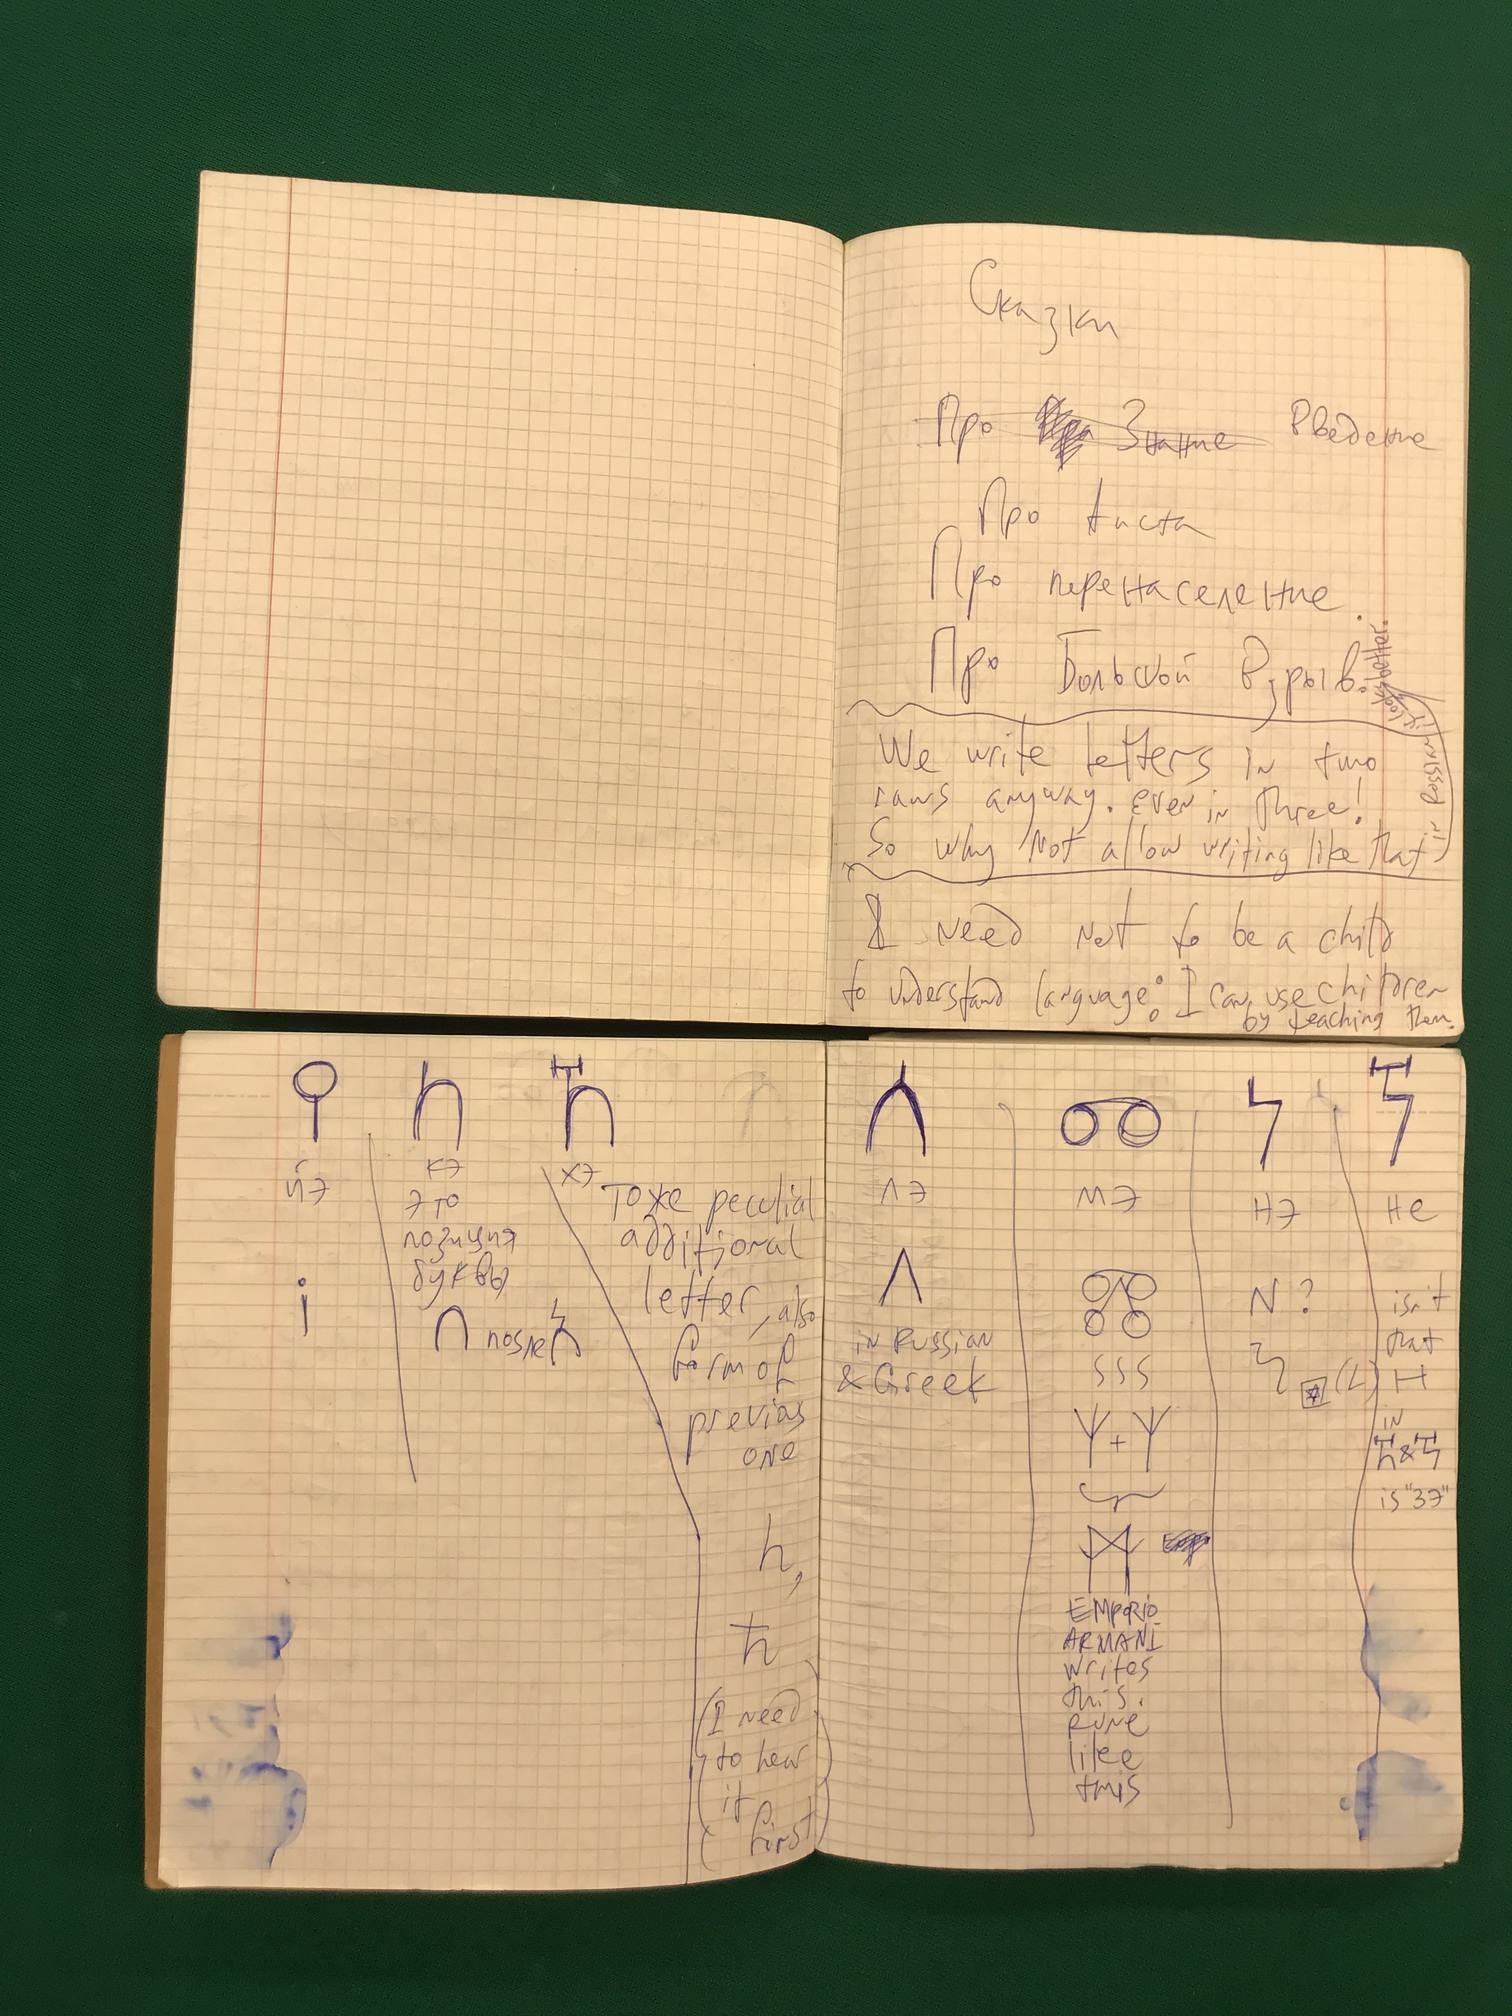 Сказки
Про Знание Введение
Про
Про перенаселение.
Про Большой Взрыв.
looks better.
in Russian it
We write letters in two
raws anyway. even in three!
So why not allow writing like that
I need not to be a child
to understand language: I can use children
by teaching them.
йэ
i
кэ
это
позиция
буквы
после
хэ
Тоже peculiar
additional
letter, also
form of
previos
one
h,
ħ
(I need
to hear
it
first)
Λ
лэ
Λ
in Russian
& Greek
мэ
SSS
+
EMPORIO
ARMANI
writes
this.
rune
like
this
нэ
N ?
(L)
не
isn't
that
H
in
&
is "зэ"